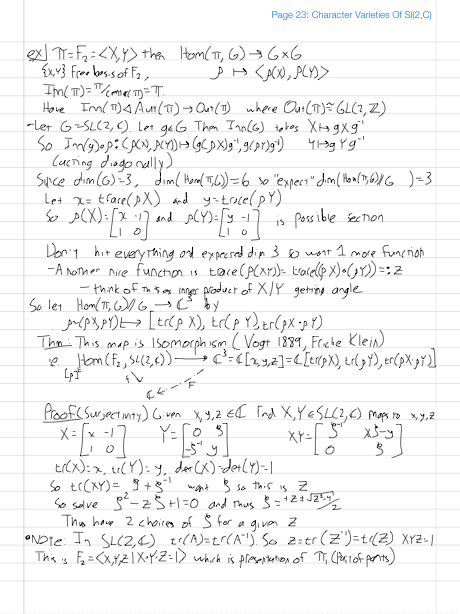 Page 23: Character Varieties Of Sl(2,C)
ex) π=F₂=<X,Y> then Hom(π,G)→G×G
{X,Y} Free basis of F₂, ρ ↦ <ρ(X),ρ(Y)>
Inn(π)=π/center(π)=π.
Have Inn(π)◁Aut(π)→Out(π) where Out(π)≅GL(2,ℤ)
-Let G=SL(2,ℂ). Let g∈G Then Inn(G) takes X↦gXg⁻¹
So Inn(g)∘ρ:(ρ(X),ρ(Y))↦(gρ(X)g⁻¹,gρ(Y)g⁻¹) Y↦gYg⁻¹
(acting diagonally)
Since dim(G)=3, dim(Hom(π,G))=6 so "expect" dim(Hom(π,G)//G)=3
Let x=trace(ρX) and y=trace(ρY)
So ρ(X)=[x -1; 1 0] and ρ(Y)=[y -1; 1 0] is possible section
Don't hit everything and expected dim 3 so want 1 more function
-Another nice function is trace(ρ(XY))=trace(ρ(X)∘ρ(Y))=:z
-think of this as inner product of X/Y getting angle
So let Hom(π,G)//G→ℂ³ by
ρ~(ρX,ρY)↦[tr(ρX),tr(ρY),tr(ρX·ρY)]
Thm: This map is Isomorphism (Vogt 1889, Fricke Klein)
ie Hom(F₂,SL(2,ℂ))→ℂ³=ℂ[x,y,z]=ℂ[tr(ρX),tr(ρY),tr(ρX·ρY)]
[ρ] ↘ ℂ ↙ F
Proof(Surjectivity) Given x,y,z∈ℂ Find X,Y∈SL(2,ℂ) maps to x,y,z
X=[x -1; 1 0] Y=[0 ξ; -ξ⁻¹ y] XY=[ξ⁻¹ xξ-y; 0 ξ]
tr(X)=x, tr(Y)=y, det(X)=det(Y)=1
So tr(XY)=ξ+ξ⁻¹ want ξ so this is z
So solve ξ²-zξ+1=0 and thus ξ=+z±√z²-4/2
Thus have 2 choices of ξ for a given z
•Note: In SL(2,ℂ) tr(A)=tr(A⁻¹). So z=tr(Z⁻¹)=tr(Z) XYZ=1
This is F₂=<X,Y,Z|X·Y·Z=1> which is presentation of π₁(Pair of pants)